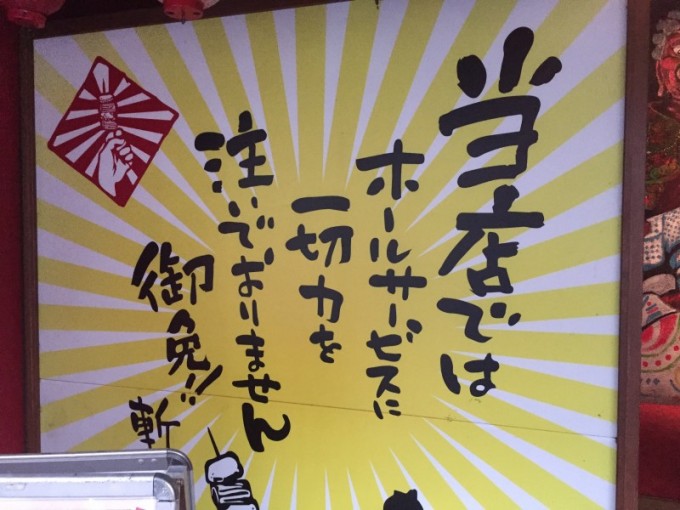 当店では
ホールサービスに
一切力を
注いでおりません
御免!!
斬